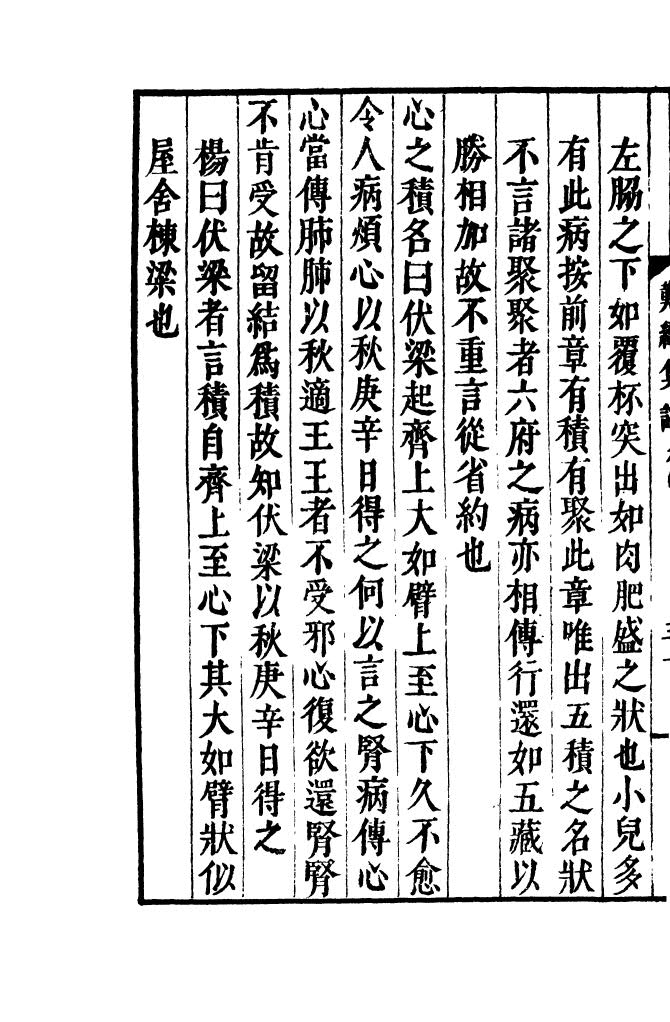 左脇之下如覆杯突出如肉肥盛之狀也小兒多
有此病按前章有積有聚此章唯出五積之名狀
不言諸聚聚者六府之病亦相傳行還如五藏以
勝相加故不重言從省約也
心之積名曰伏梁起齊上大如臂上至心下久不愈
令人病煩心以秋庚辛日得之何以言之腎病傳心
心當傳肺肺以秋適王王者不受邪心復欲還腎腎
不肯受故留結爲積故知伏梁以秋庚辛日得之
楊曰伏梁者言積自齊上至心下其大如臂狀似
屋舍棟梁也